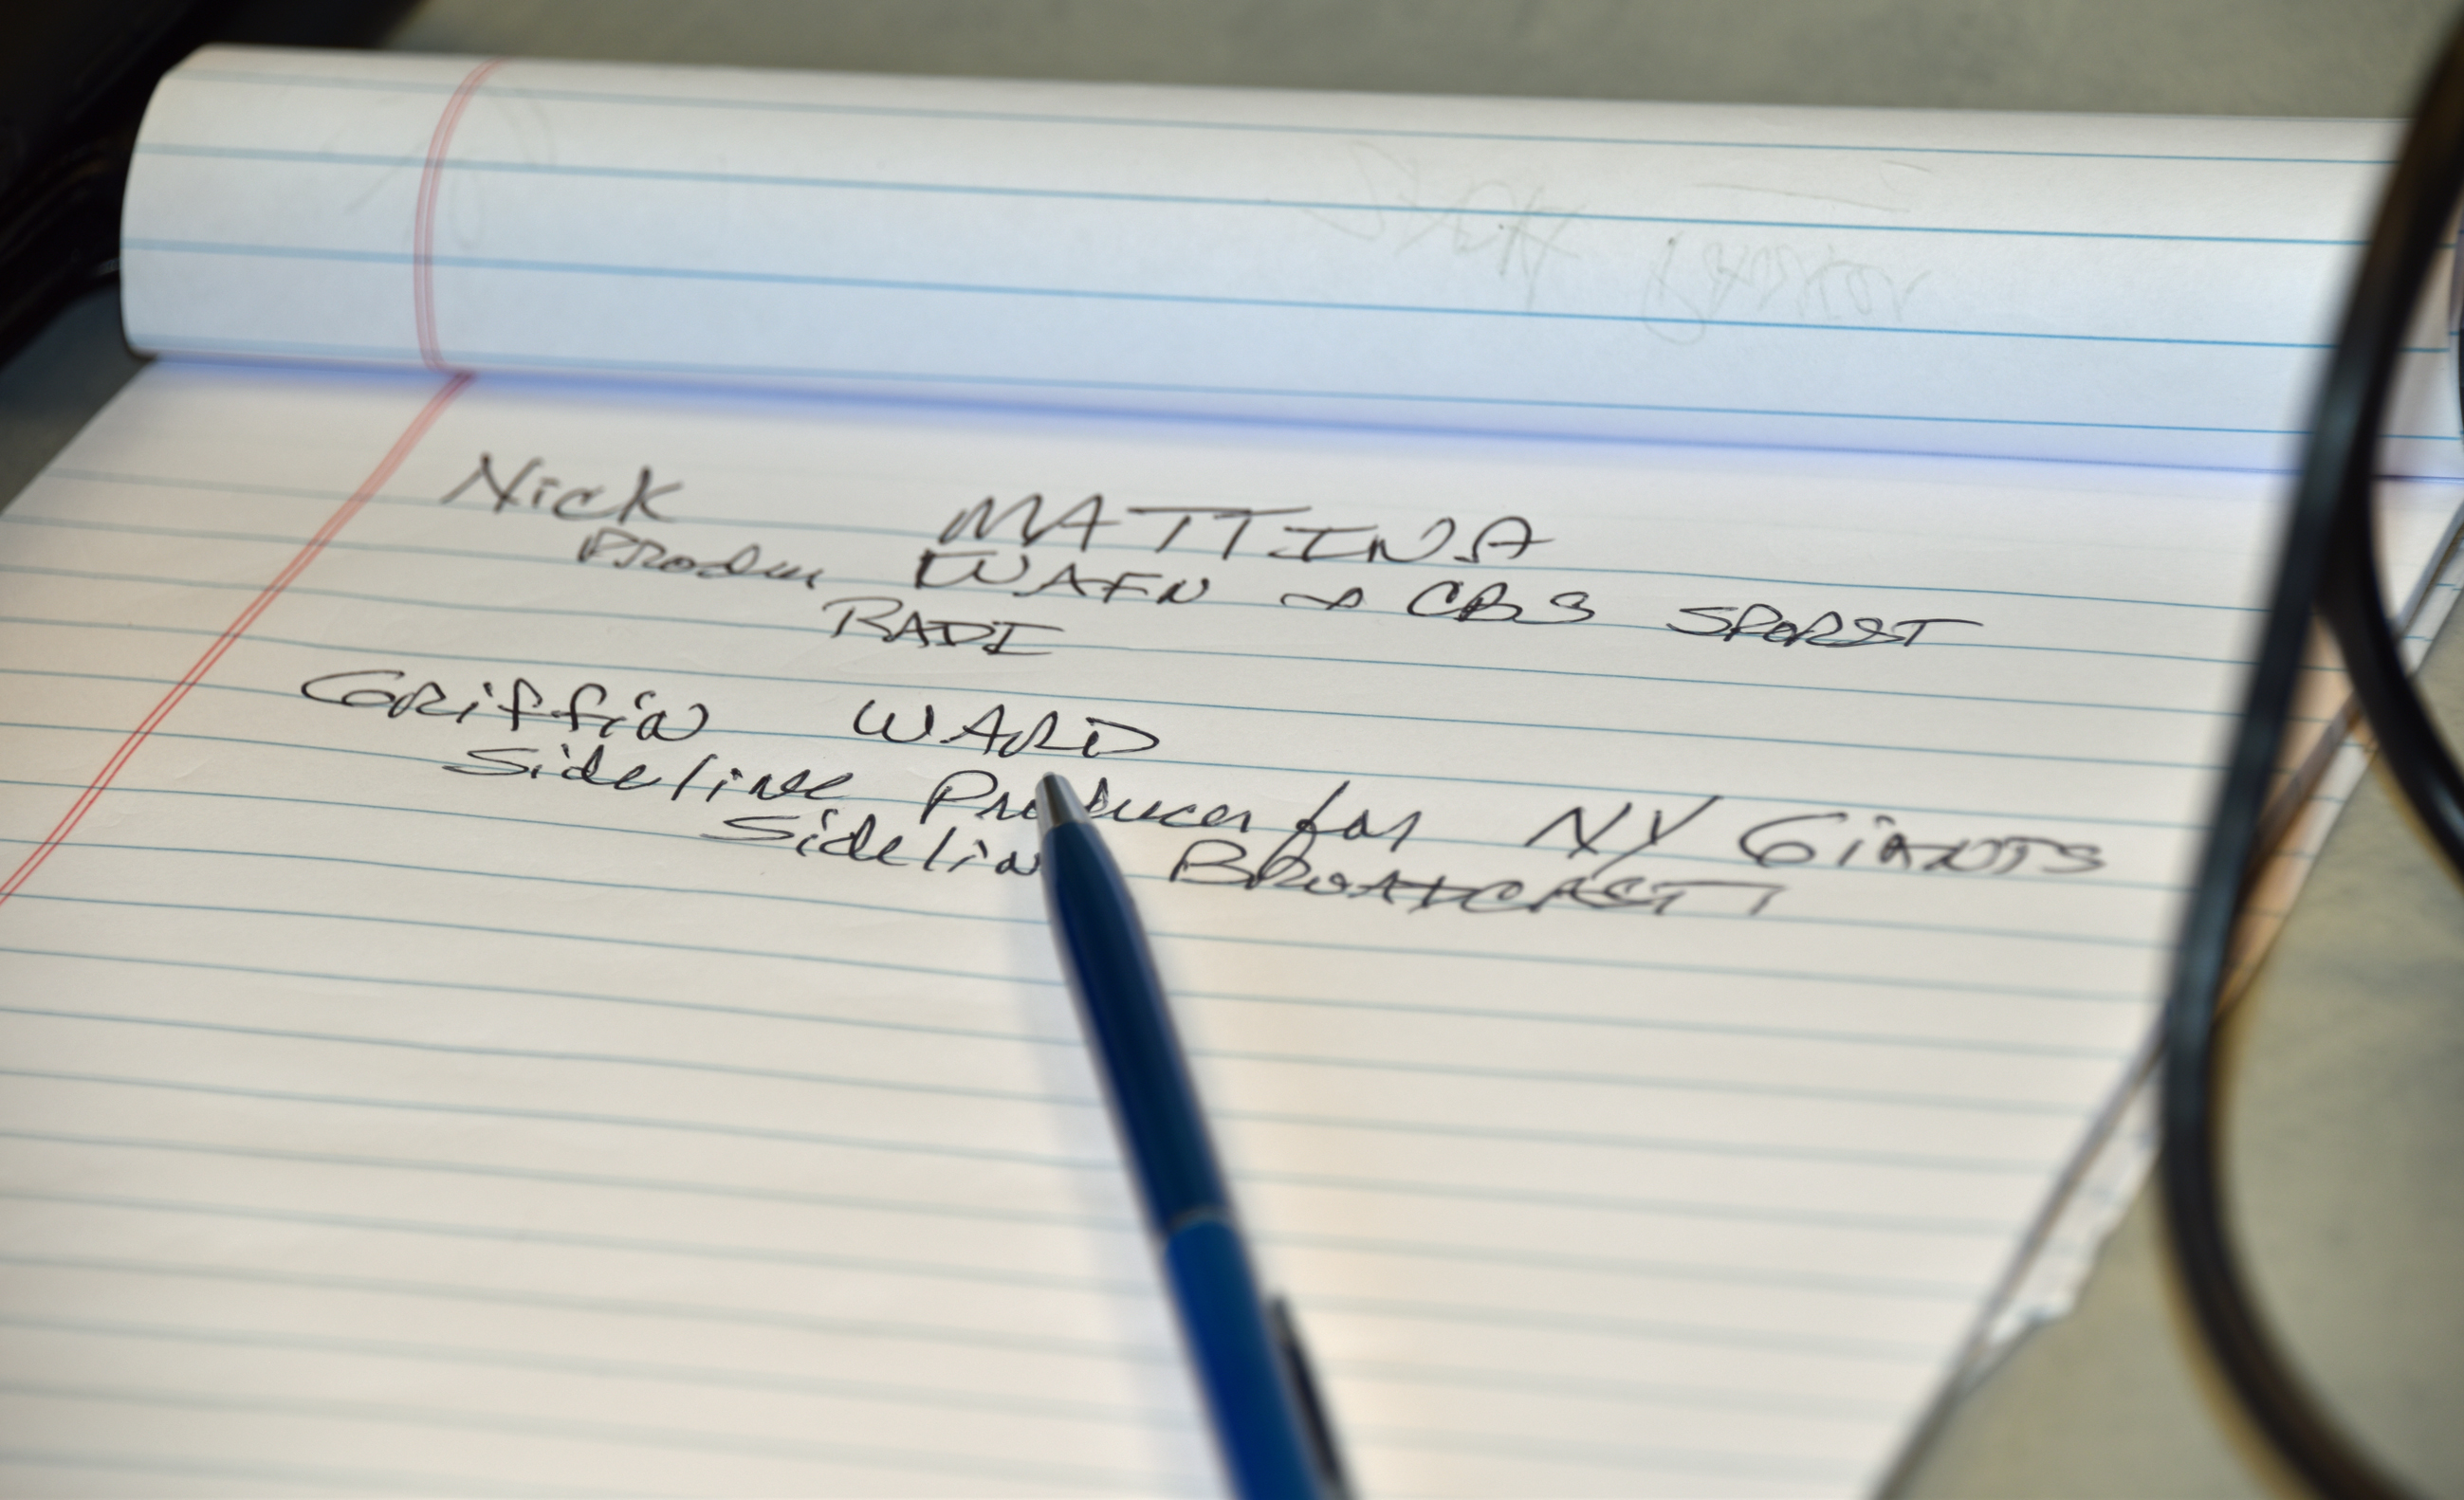 Nick MATTINA
Produ WAFN & CBS SPORST
RADI
Griffin WARD
Sideline Producer for NY GiANTS
Sidelin BROADCAST